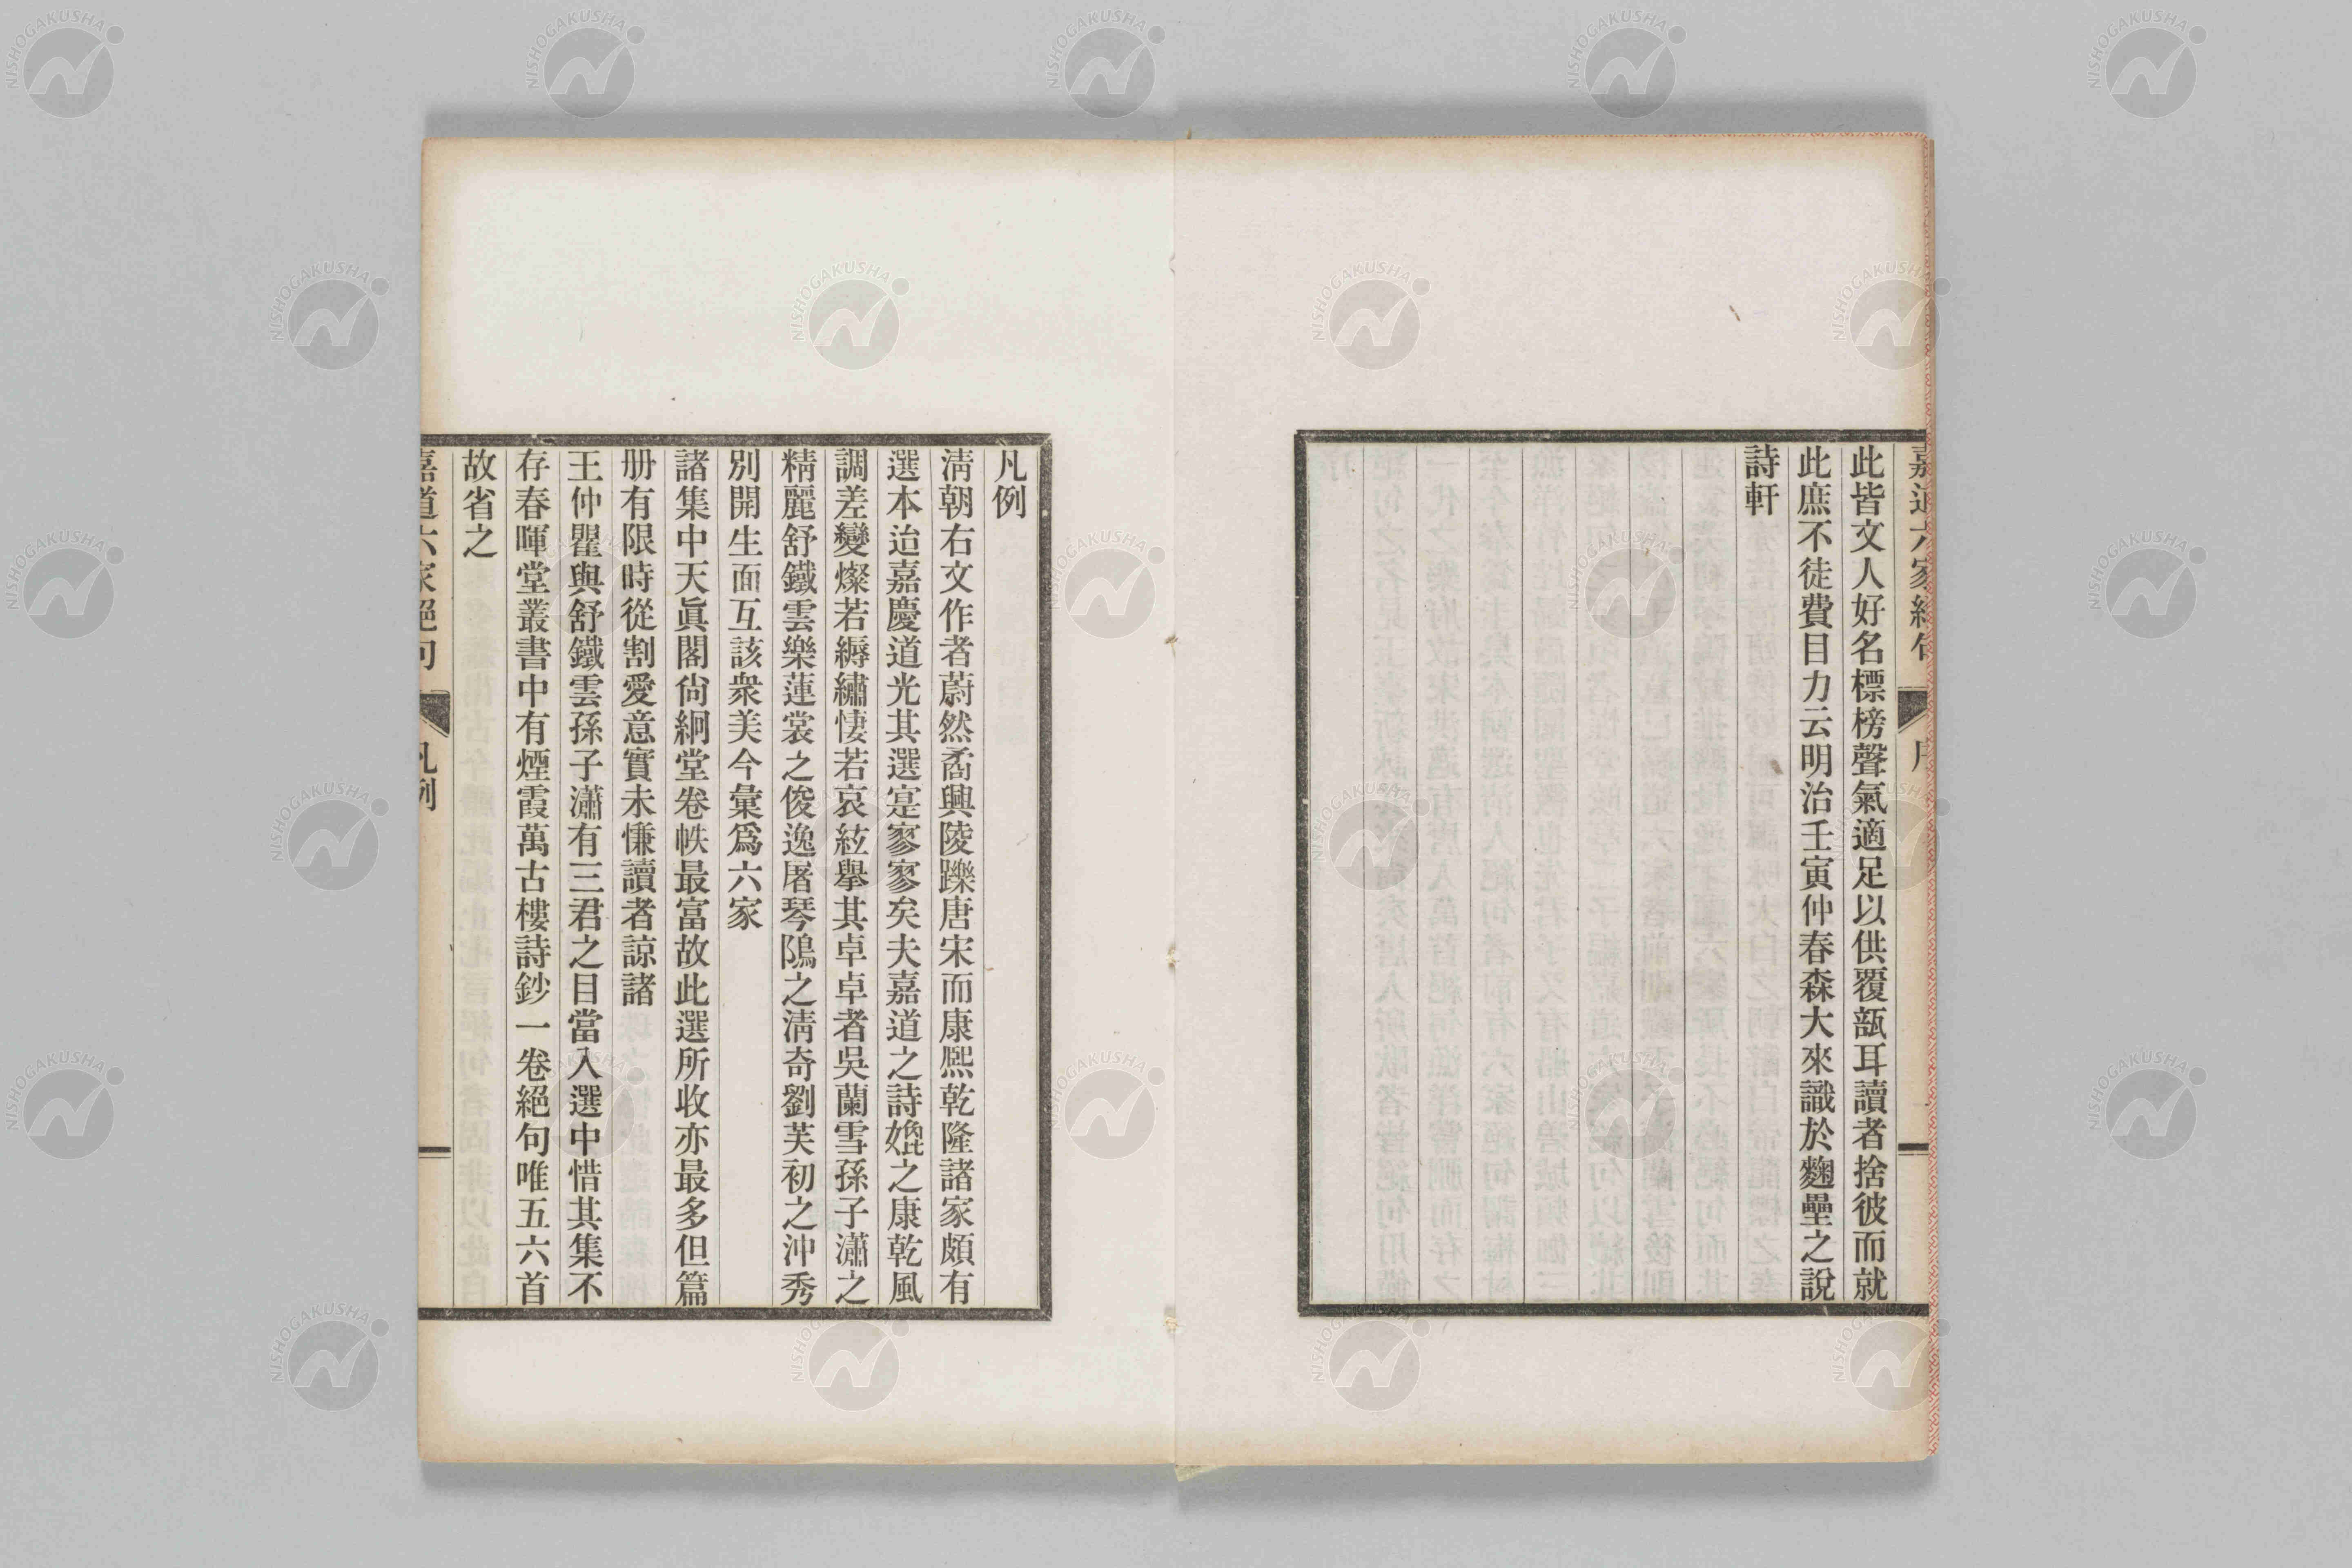 嘉道六家絕句
序
此皆文人好名標榜聲氣適足以供覆瓿耳讀者捨彼而就
此庶不徒費目力云明治壬寅仲春森大來識於麴壘之說
詩軒
凡例
淸朝右文作者蔚然矞興陵躒唐宋而康熙乾隆諸家頗有
選本迨嘉慶道光其選寔寥寥矣夫嘉道之詩媲之康乾風
調差變燦若縟繡悽若哀絃擧其卓卓者吳蘭雪孫子瀟之
精麗舒鐵雲樂蓮裳之俊逸屠琴隝之淸奇劉芙初之沖秀
別開生面互該衆美今彙爲六家
諸集中天眞閣尙絅堂卷帙最富故此選所收亦最多但篇
册有限時從割愛意實未慊讀者諒諸
王仲瞿與舒鐵雲孫子瀟有三君之目當入選中惜其集不
存春暉堂叢書中有煙霞萬古樓詩鈔一卷絕句唯五六首
故省之
嘉道六家絕句
凡例
NISHOGAKUSHA